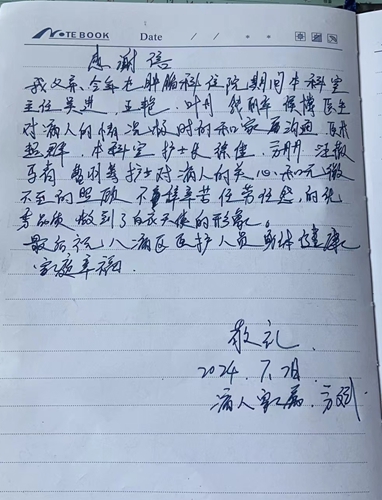 NOTE BOOK Date / /
感谢信
我父亲今年在肿瘤科住院期间本科室
主任吴进、王艳、叶丹 医生
对病人的情况 时的和家属沟通,医术
超群,本科室护士长徐佳、
护士对病人的关心和无微
不至的照顾 不辞辛苦任劳任怨的优
秀品质做到了白衣天使的形象。
最后祝八病区医护人员身体健康
家庭幸福.
敬礼.
2024.7.2日.
病人家属.